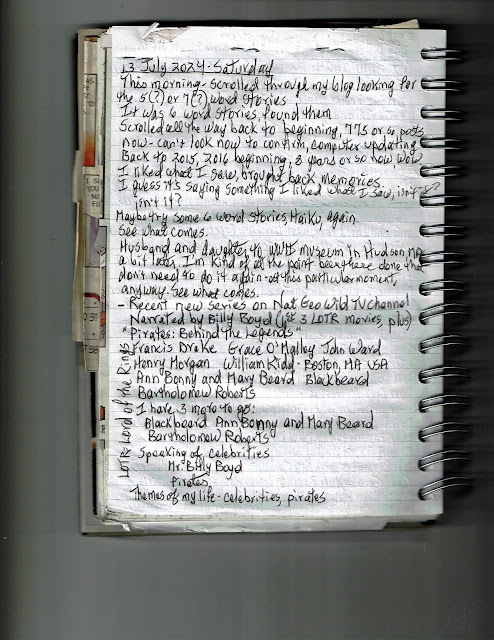 13 July 2024 - Saturday
This morning - scrolled through my blog looking for
the 5(?) or 7(?) word stories
It was 6 word stories, found them
Scrolled all the way back to beginning, 775 or so posts
now - can't look now to confirm, computer updating
Back to 2015, 2016 beginning, 8 years or so now wow
I liked what I saw, brought back memories
I guess it's saying something I liked what I saw, isn't it?
isn't it?
Maybe try some 6 word stories, Haiku, again
See what comes.
Husband and daughter to WWII museum in Hudson, MA
a bit later. I'm kind of at the point been there done that
don't need to do it again - at this particular moment,
anyway. See what comes.
- Recent new series on Nat Geo Wild TV Channel
Narrated by Billy Boyd (1st 3 LOTR movies, plus)
"Pirates: Behind the Legends"
Francis Drake Grace O'Malley John Ward
Henry Morgan William Kidd - Boston, MA USA
Ann Bonny and Mary Beard Blackbeard
Bartholomew Roberts
I have 3 more to go:
Blackbeard Ann Bonny and Mary Beard
Bartholomew Roberts
Speaking of celebrities
Mr. Billy Boyd
Pirates
Themes of my life - celebrities, pirates
LOTR Lord of the Rings